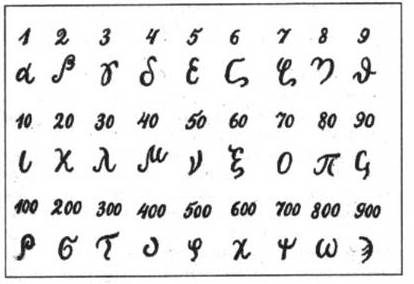 1 2 3 4 5 6 7 8 9
α β γ δ ε ϛ ζ η ϑ
10 20 30 40 50 60 70 80 90
ι κ λ μ ν ξ ο π ϟ
100 200 300 400 500 600 700 800 900
ρ σ τ υ φ χ ψ ω ϡ